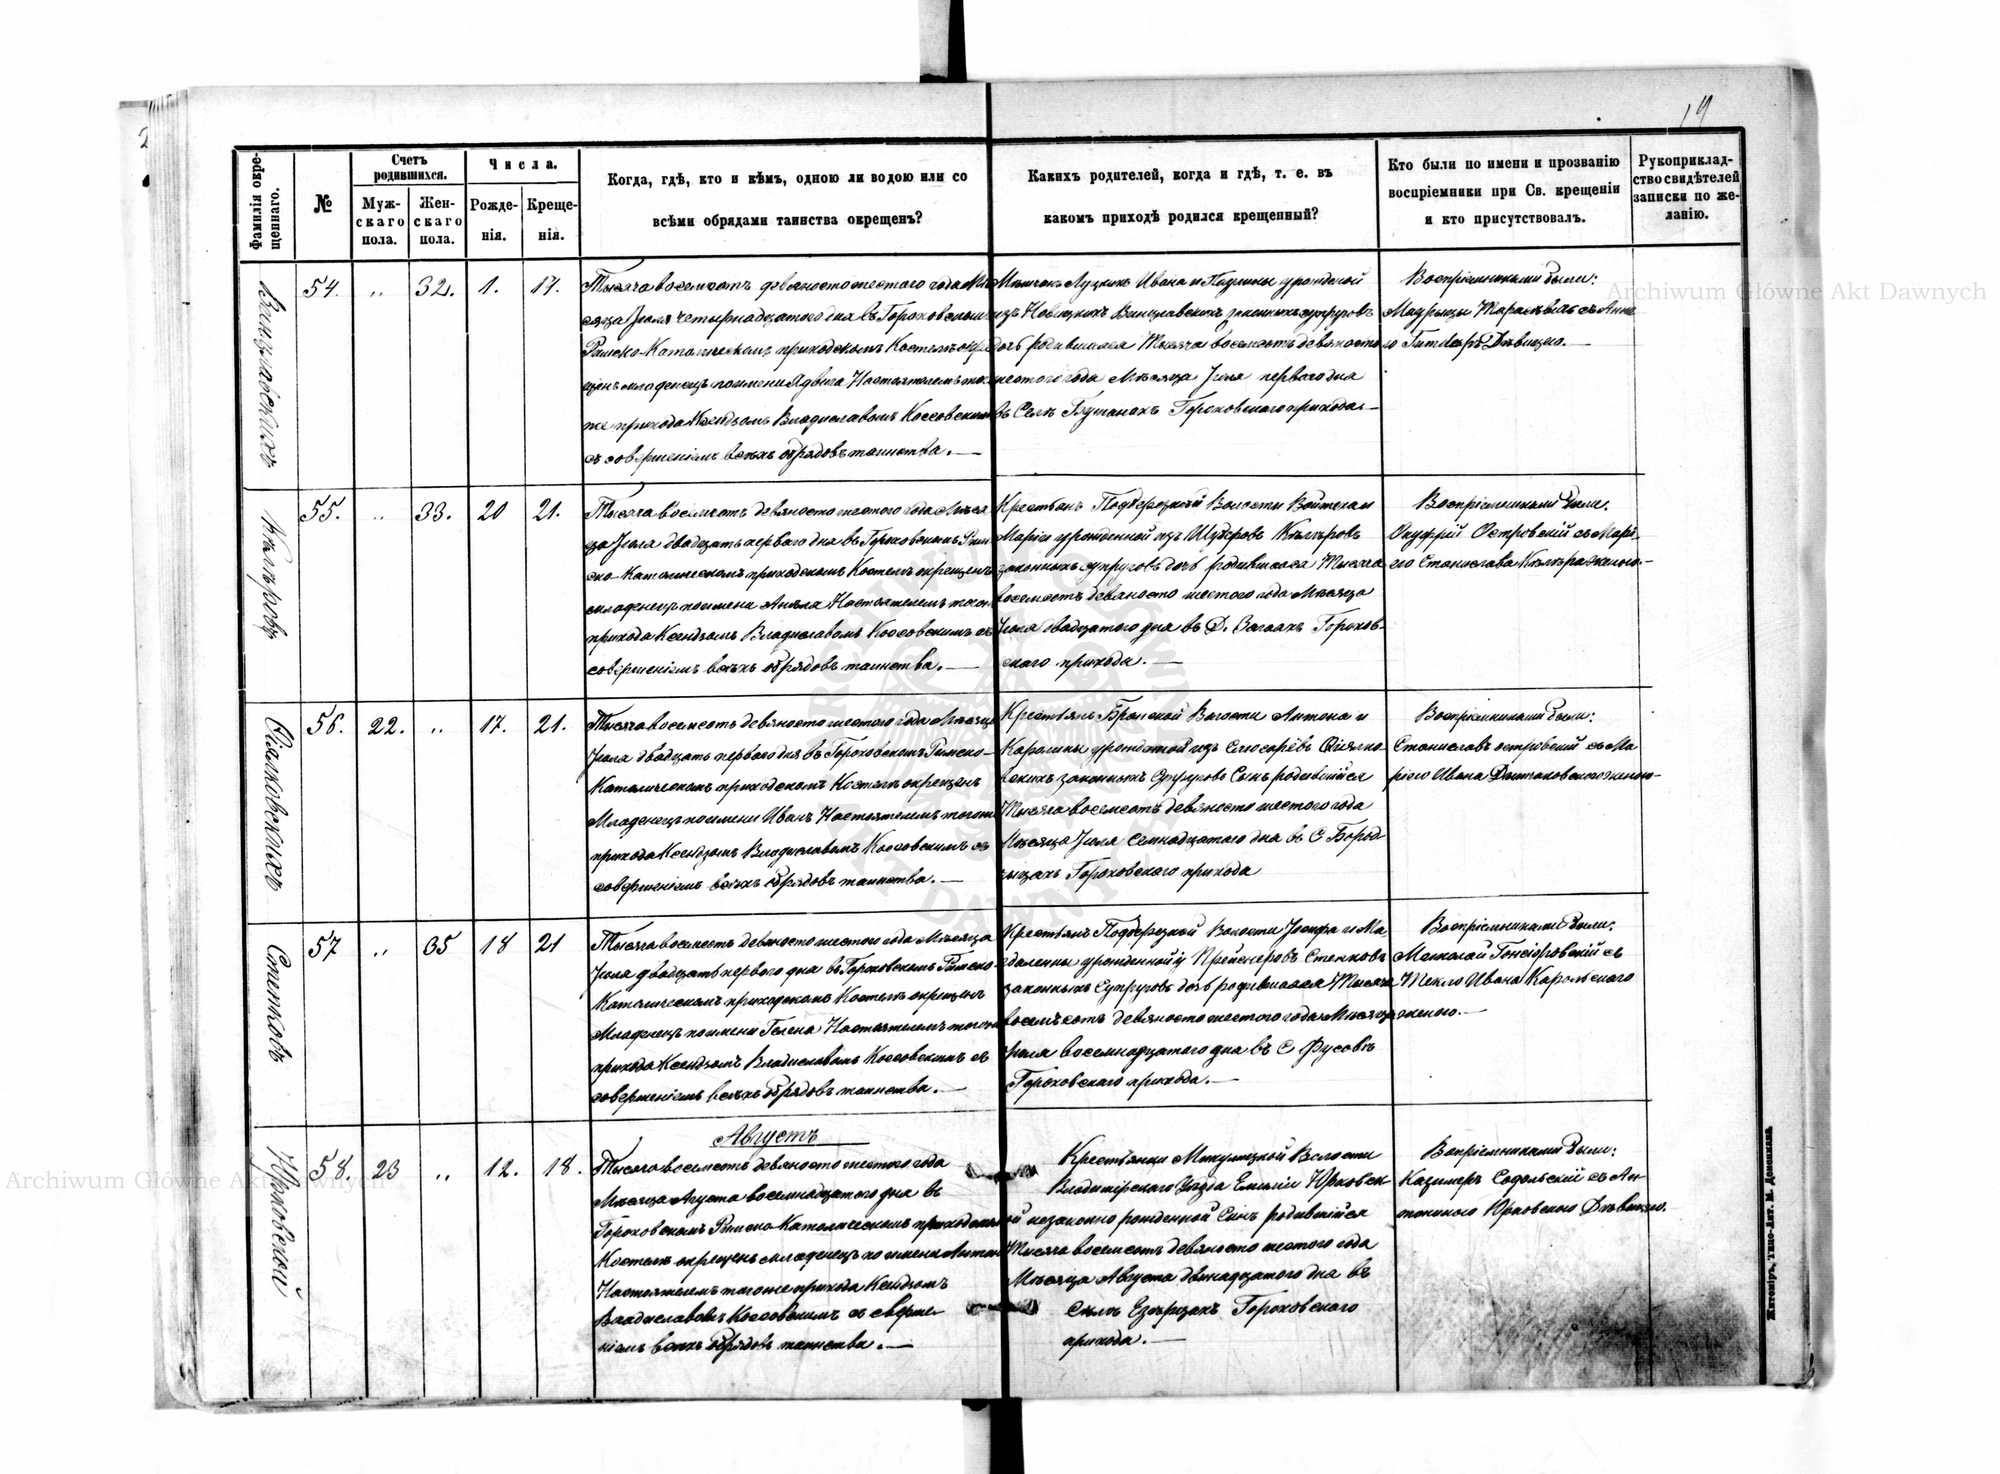 19
Фамилія окре-
щеннаго.
№
Счетъ
родившихся.
Муж-
скаго
пола.
Жен-
скаго
пола.
Числа.
Рожде-
нія.
Креще-
нія.
Когда, гдѣ, кто и кѣмъ, одною ли водою или со
всѣми обрядами таинства окрещенъ?
Какихъ родителей, когда и гдѣ, т. е. въ
какомъ приходѣ родился крещенный?
Кто были по имени и прозванію
воспріемники при Св. крещеніи
и кто присутствовалъ.
Рукоприклад-
ство свидѣтелей
записки по же-
ланію.
54. „ 32. 1. 17.
Тысяча восемьсотъ девяносто шестого года Мѣ
сяца Іюля четырнадцатого дня въ Гороховскомъ
Римско Католическомъ приходскомъ Костелѣ окре
щенъ младенецъ по имени Ядвига Настоятелемъ того
же прихода Ксендзомъ Владиславомъ Коссовскимъ
съ совершеніемъ всѣхъ обрядовъ таинства.—
Мѣщанъ Луцкихъ Ивана и Паулины урожденной
изъ Новицкихъ законныхъ супруговъ
дочь родившаяся Тысяча восемьсотъ девяносто
шестого года Мѣсяца Іюля перваго дня
въ Селѣ Гороховского прихода.—
Воспріемниками были:
съ Анно
ю Дѣвицею.—
Кельтровъ
55. „ 33. 20 21.
Тысяча восемьсотъ девяносто шестого года Мѣся
ца Іюля двадцать перваго дня въ Гороховскомъ Рим
ско-Католическомъ приходскомъ Костелѣ окрещенъ
младенецъ по имени Анеля Настоятелемъ того же
прихода Ксендзомъ Владиславомъ Коссовскимъ съ
совершеніемъ всѣхъ обрядовъ таинства.—
Крестьянъ Подберезкой Волости Войтеха и
Маріи урожденной изъ
законныхъ супруговъ дочь родившаяся Тысяча
восемьсотъ девяносто шестого года Мѣсяца
Іюля двадцатого дня въ Д. Горохов-
скаго прихода.—
Воспріемниками были:
Онуфрій Островскій съ Марі-
ею Станислава женою.—
Фіялковскихъ
56. 22. „ 17. 21.
Тысяча восемьсотъ девяносто шестого года Мѣсяца
Іюля двадцать перваго дня въ Гороховскомъ Римско-
Католическомъ приходскомъ Костелѣ окрещенъ
Младенецъ по имени Иванъ Настоятелемъ того же
прихода Ксендзомъ Владиславомъ Коссовскимъ съ
совершеніемъ всѣхъ обрядовъ таинства.—
Крестьянъ Бранской Волости Антона и
Каролины урожденной изъ Слюсаревъ Фіялко-
вскихъ законныхъ Супруговъ Сынъ родившійся
Тысяча восемьсотъ девяносто шестого года
Мѣсяца Іюля Семнадцатого дня въ С
Гороховского прихода
Воспріемниками были:
Станиславъ Островскій съ Ма
ріею Ивана женою—
Стенковъ
57 „ 35 18 21
Тысяча восемьсотъ девяносто шестого года Мѣсяца
Іюля двадцать перваго дня въ Гороховскомъ Римско
Католическомъ приходскомъ Костелѣ окрещенъ
Младенецъ по имени Гелена Настоятелемъ того же
прихода Ксендзомъ Владиславомъ Коссовскимъ съ
совершеніемъ всѣхъ обрядовъ таинства.—
Крестьянъ Подберезкой Волости Іосифа и Ма
гдалены урожденной Стенковъ
законныхъ Супруговъ дочь родившаяся Тысяча
восемьсотъ девяносто шестого года Мѣсяца
Іюля восемнадцатого дня въ С Фусовѣ
Гороховскаго прихода.—
Воспріемниками были:
Николай Гонсіоровскій съ
Теклею Ивана Карольского
женою.—
Августъ
Юрковской
58. 23 „ 12. 18.
Тысяча восемьсотъ девяносто шестого года
Мѣсяца Августа восемнадцатого дня въ
Гороховскомъ Римско Католическомъ приходскомъ
Костелѣ окрещенъ младенецъ по имени
Настоятелемъ того же прихода Ксендзомъ
Владиславомъ Коссовскимъ съ соверше
ніемъ всѣхъ обрядовъ таинства.—
Крестьянки Микулицкой Волости
Владимірскаго Уѣзда Емиліи Юрковск
ой незаконно рожденной Сынъ родившійся
Тысяча восемьсотъ девяносто шестого года
Мѣсяца Августа двенадцатого дня въ
Селѣ Гороховского
прихода.—
Воспріемниками были:
Казимеръ Садольскій съ Ан-
тониною Юрковскою Дѣвицею.
Житоміръ, Типо-Лит. М. Дененмана.
Archiwum Główne Akt Dawnych
Archiwum Główne Akt Dawnych